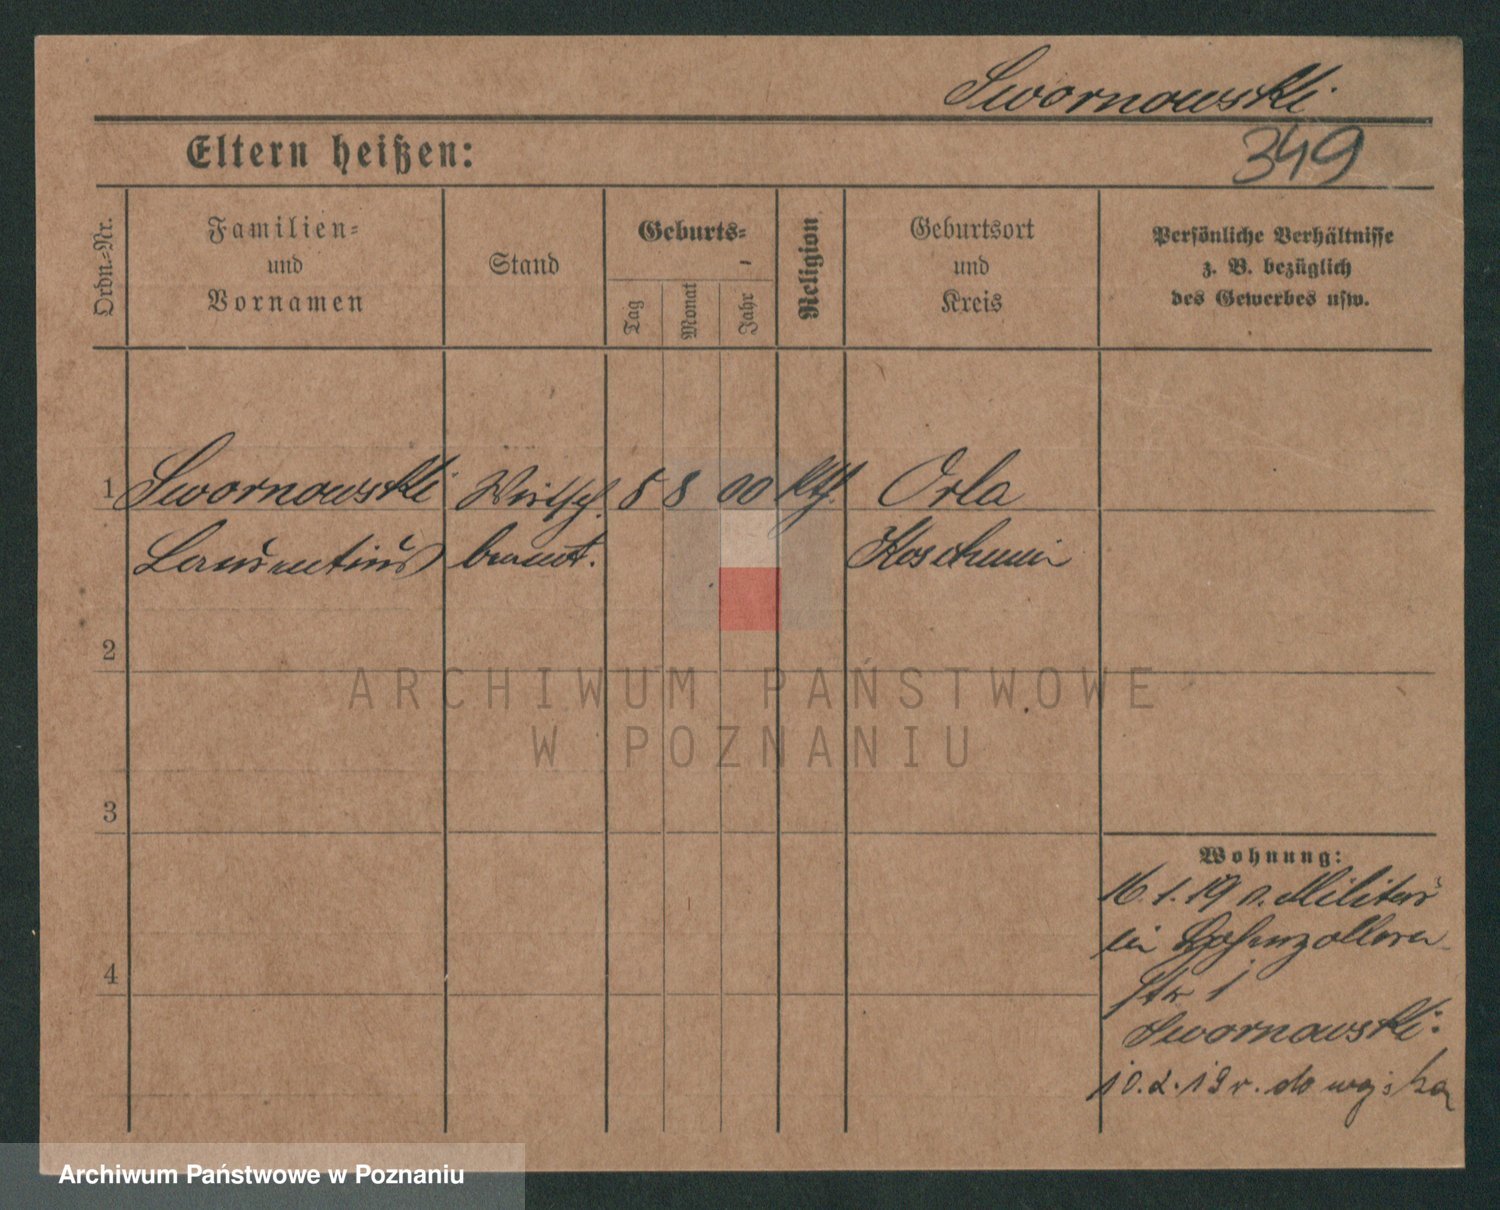 Swornowski
349
Eltern heißen:
Ordn.-Nr.
Familien-
und
Vornamen
Stand
Geburts-
Tag
Monat
Jahr
Religion
Geburtsort
und
Kreis
Persönliche Verhältnisse
z. B. bezüglich
des Gewerbes usw.
1 Swornowski Wirtsch. 8 8 00 kth. Orla
Laurentius beamt. Koschmin
2
3
4
Wohnung:
16.1.19 v. Militär
in Hohenzollern
str 1
Swornowski.
10.2.19 r. do wojska
ARCHIWUM PAŃSTWOWE
W POZNANIU
Archiwum Państwowe w Poznaniu